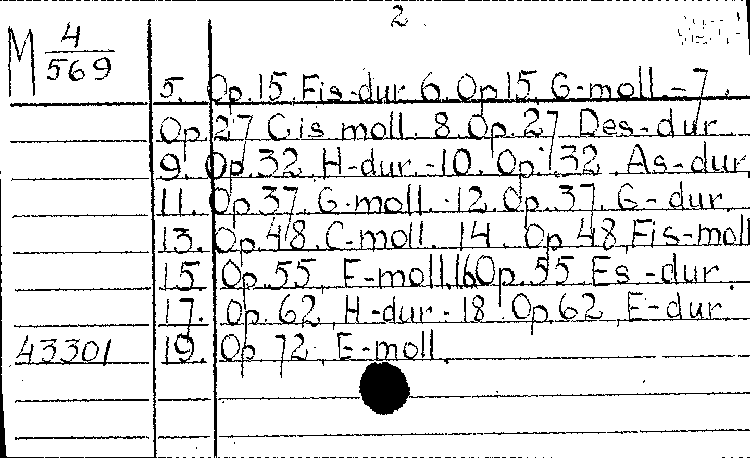 2.
M 4/569
5. Op.15, Fis-dur 6. Op.15, G-moll. - 7.
Op.27 Cis moll. 8. Op. 27 Des-dur
9. Op.32, H-dur. - 10. Op. 32, As-dur,
11. Op.37, G-moll. - 12. Op. 37. G-dur.
13. Op.48. C-moll. 14. Op 48, Fis-moll
15 Op.55, F-moll. 16 Op.55 Es-dur.
17. Op. 62, H-dur - 18 Op. 62, E-dur.
43301 19. Op 72, E-moll.